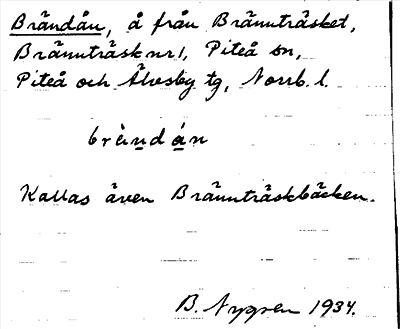 Brändån, å från Brännträsket,
Brännträsk nr 1, Piteå sn,
Piteå och Älvsby tg, Norrb. l.
brä̀ndán
Kallas även Brännträskbäcken.
B. Nygren 1934.